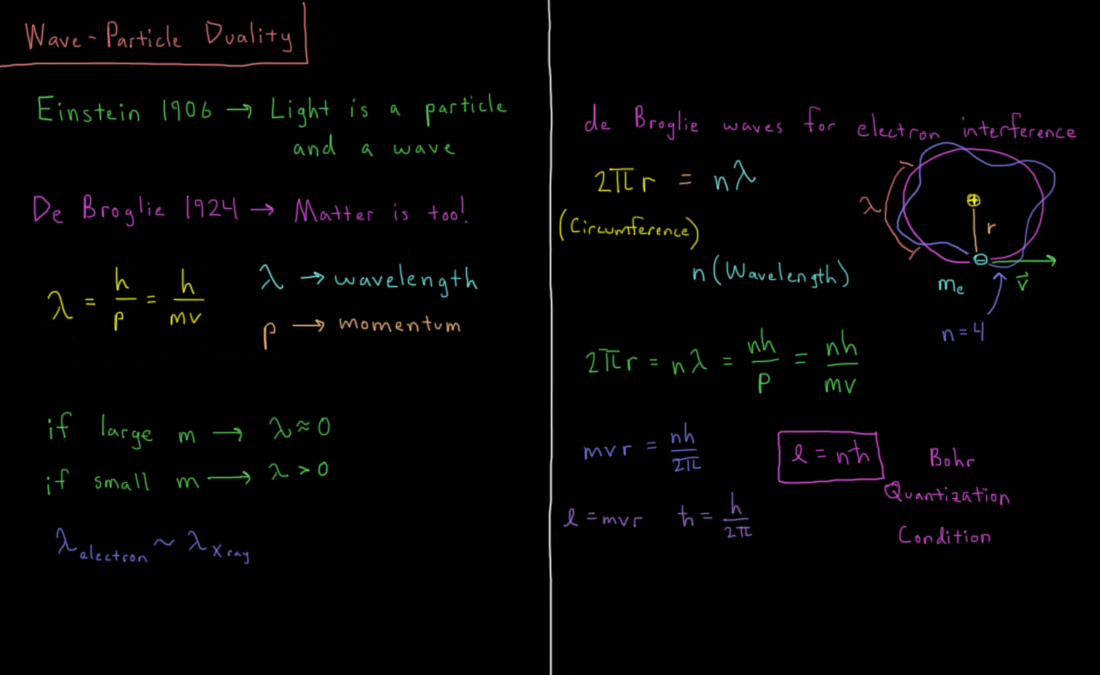 Wave-Particle Duality
Einstein 1906 → Light is a particle
and a wave
De Broglie 1924 → Matter is too!
λ = h/p = h/mv
λ → wavelength
p → momentum
if large m → λ ≈ 0
if small m → λ > 0
λ electron ~ λ X ray
de Broglie waves for electron interference
2πr = nλ
(Circumference)
n (Wavelength)
λ
+
r
−
m e
v⃗
n=4
2πr = nλ = nh/p = nh/mv
mvr = nh/2π
ℓ = nħ
Bohr
Quantization
Condition
ℓ = mvr ħ = h/2π